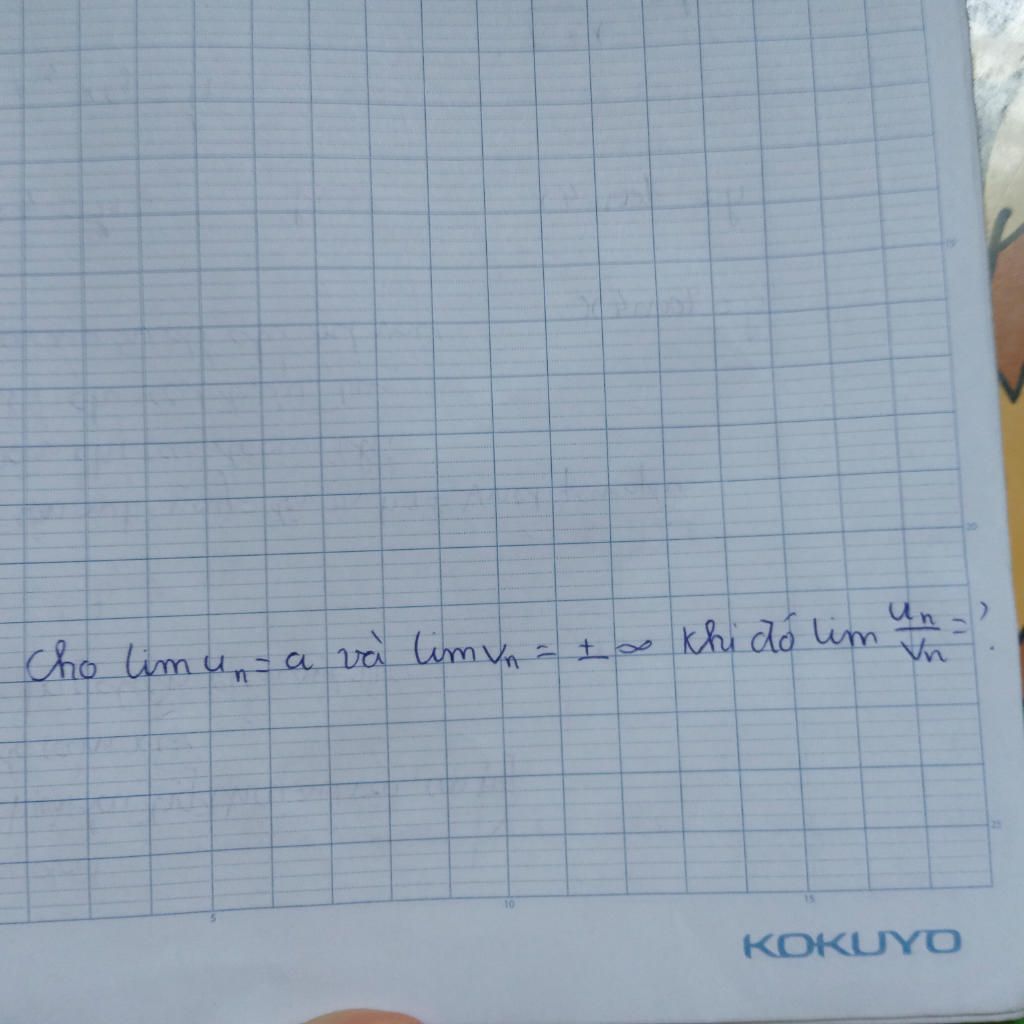 19
20
Cho lim uₙ = a và lim vₙ = ± ∞ khi đó lim uₙ/vₙ = ?
25
5 10 15
KOKUYO